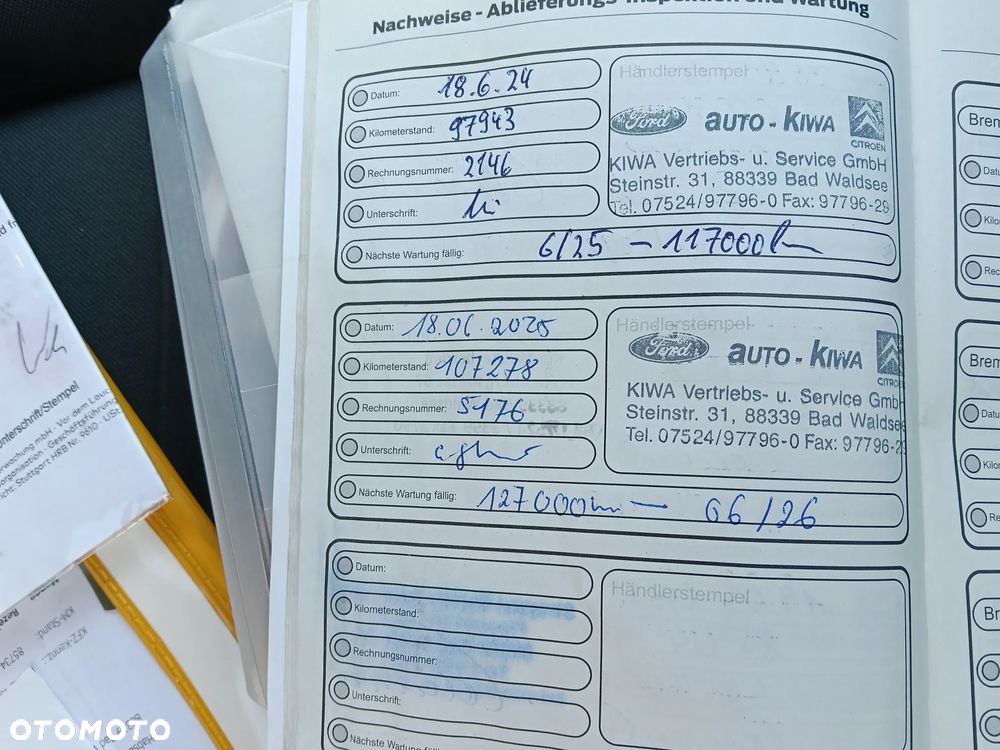 Nachweise - Ablieferungs-Inspektion und Wartung
Datum: 18.6.24
Kilometerstand: 97943
Rechnungsnummer: 2146
Unterschrift:
Nächste Wartung fällig: 6/25 - 117000
Händlerstempel
Ford AUTO-KIWA CITROEN
KIWA Vertriebs- u. Service GmbH
Steinstr. 31, 88339 Bad Waldsee
Tel. 07524/97796-0 Fax: 97796-29
Datum: 18.06.2025
Kilometerstand: 107278
Rechnungsnummer: 5176
Unterschrift:
Nächste Wartung fällig: 127000km - 06/26
Händlerstempel
Ford AUTO-KIWA CITRO
KIWA Vertriebs- u. Service Gmb
Steinstr. 31, 88339 Bad Waldse
Tel. 07524/97796-0 Fax: 97796-2
Datum:
Kilometerstand:
Rechnungsnummer:
Unterschrift:
Nächste Wartung fällig:
Händlerstempel
Brem
Datu
Kilo
Rec
Brem
Datu
Kilo
Re
Br
nterschrift/Stempel
erwachung mbH · Vor dem Lauc
organisation · Geschäftsführung
icht: Stuttgart HRB Nr. 9610 · USt
KM-Stand:
KFZ-Kennz.:
85734
OTOMOTO